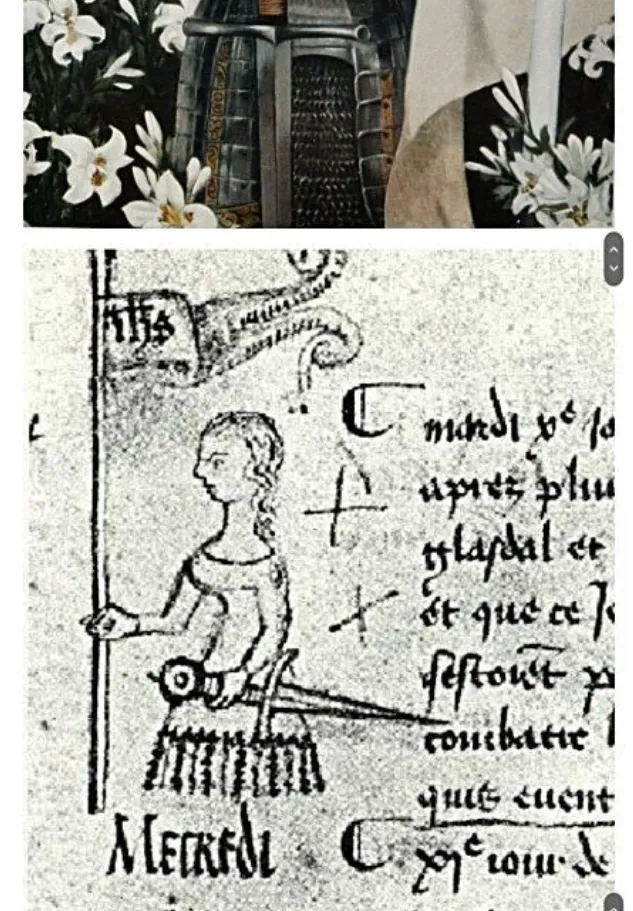 ihs
mardi xe jo
apres plui
glasdal et
et que ce Jo
sestoiēt
combatre
quis euent
MERKEDI
xie iour de